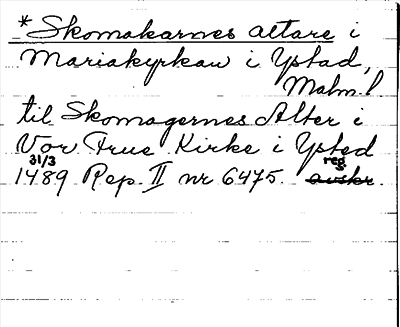 *Skomakarnes altare i
Mariakyrkan i Ystad,
Malm. l
til Skomagernes Alter i
Vor Frue Kirke i Ysted
31/3 reg.
1489 Rep. II nr 6475. avskr.